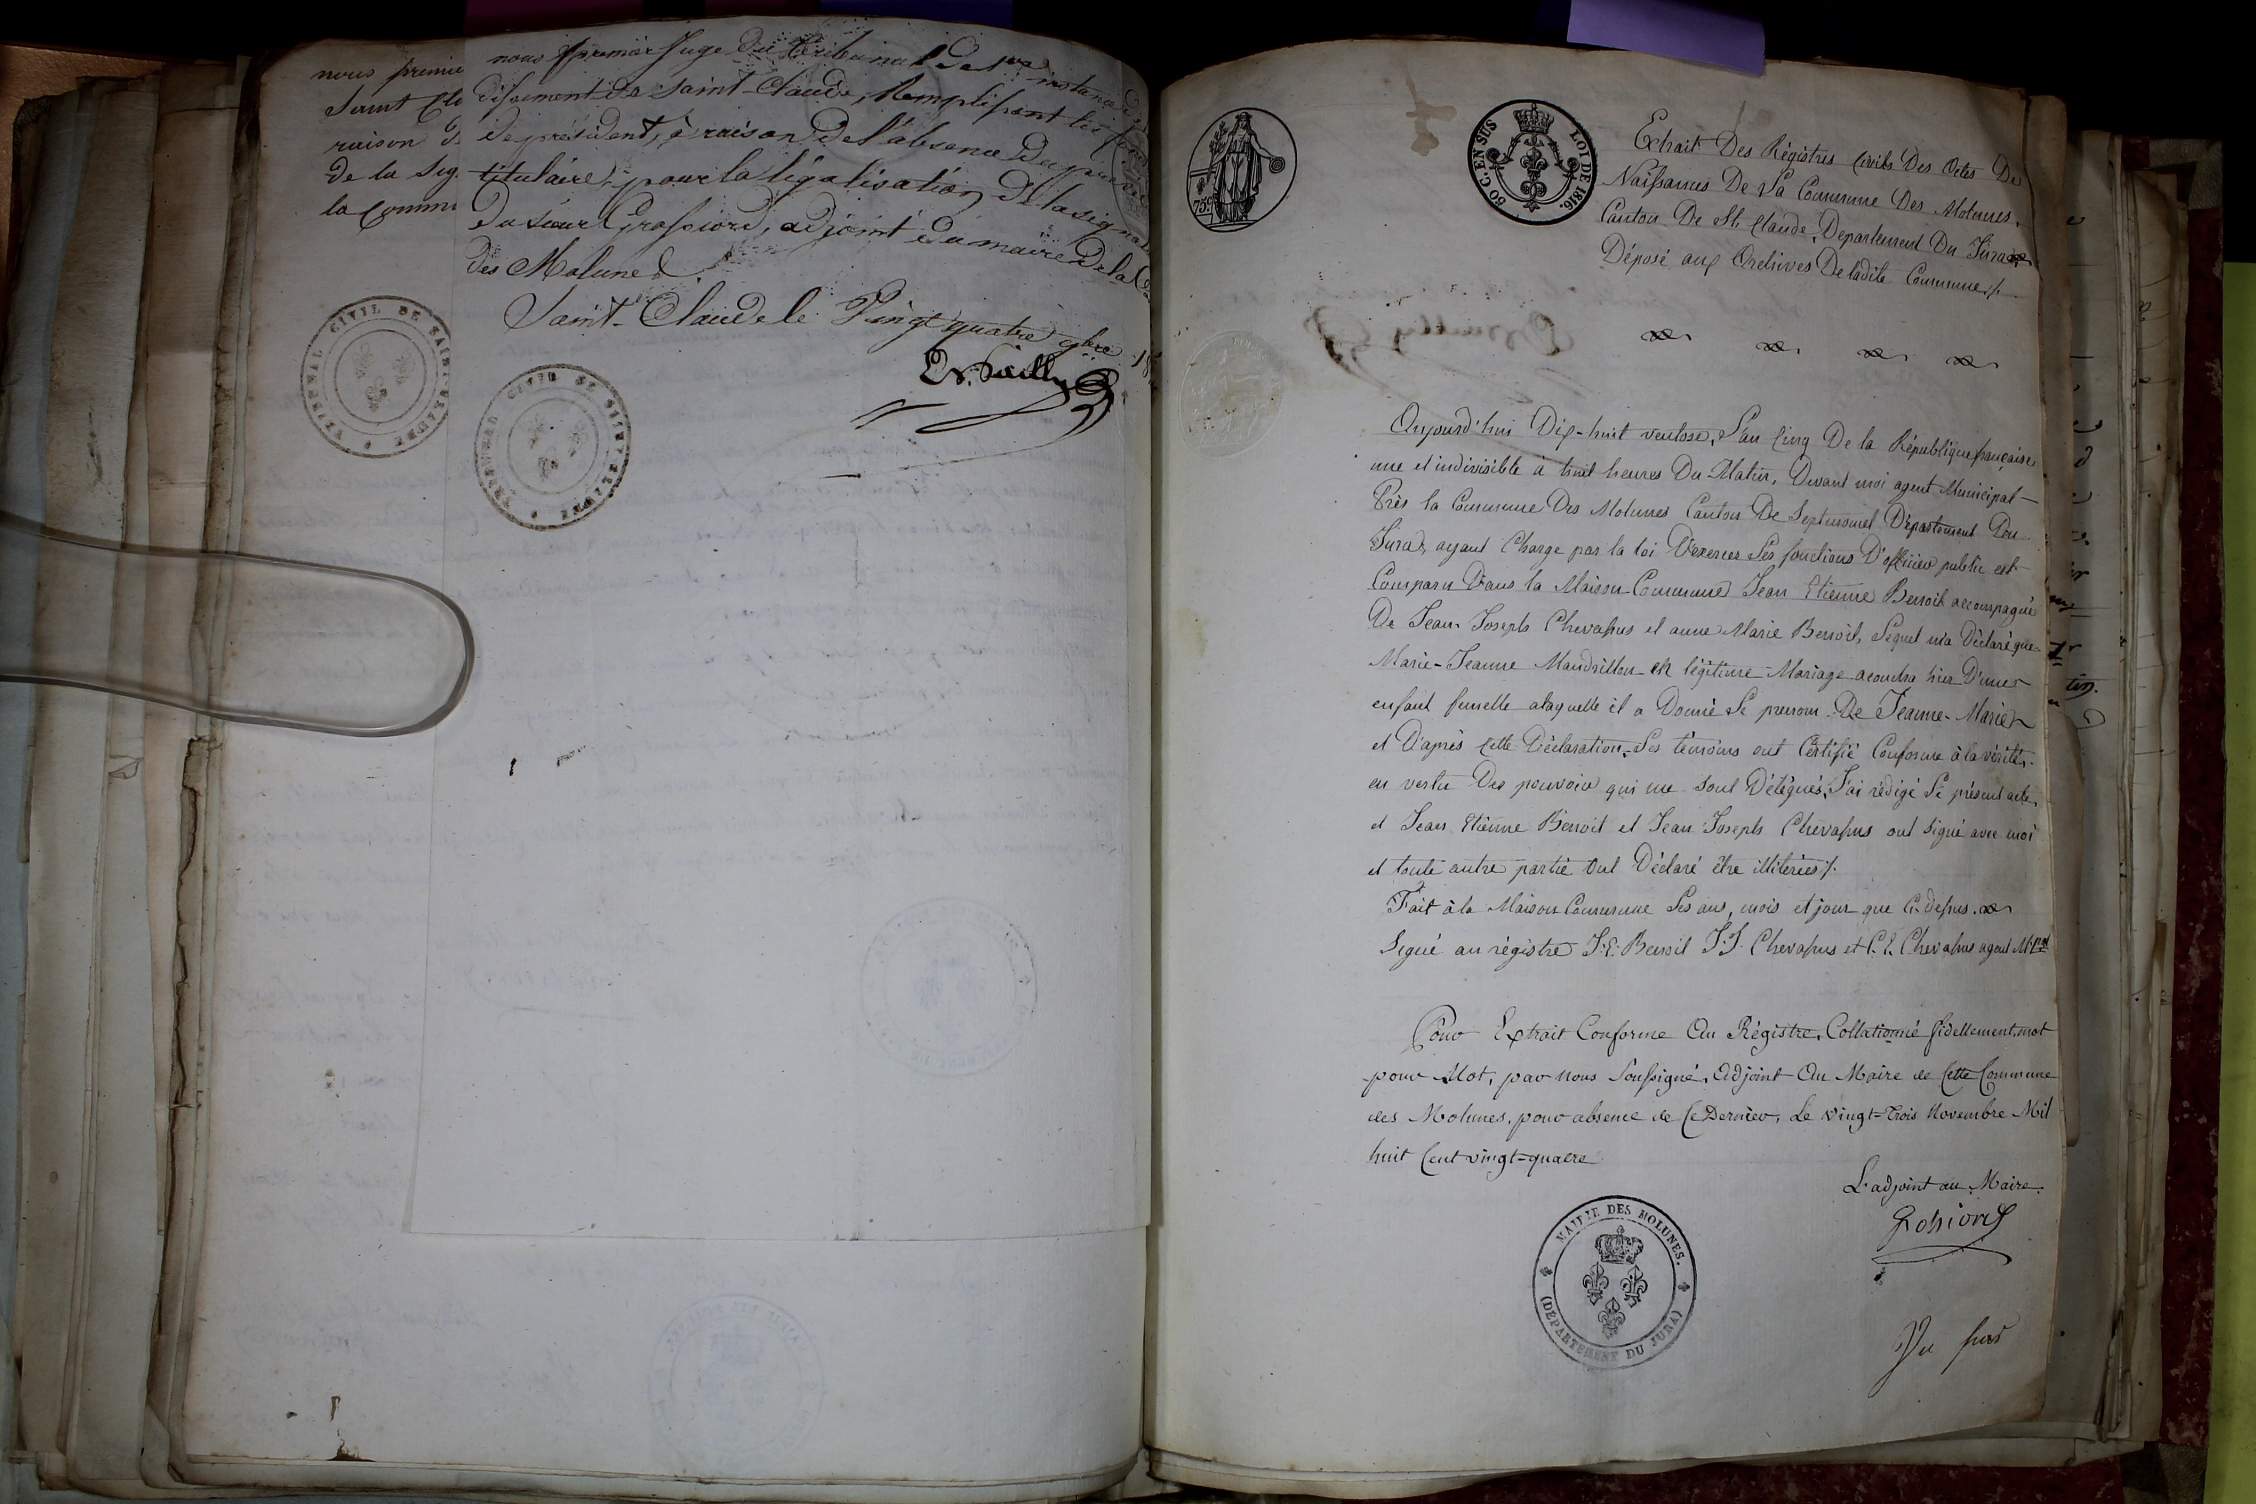 nous premie
Saint Cla
raison d
de la sig
la commu
TRIBUNAL CIVIL DE SAINT-CLAUDE
nous premier Juge du tribunal de 1ere instance d
dissement de Saint-Claude, Remplissant les fon
de président, à raison de l'absence du
titulaire, pour la légalisation de la signat
du sieur Grossiord, adjoint du maire de la C
des Molunes.
Saint-Claude le Vingt quatre 9bre 18
TRIBUNAL CIVIL DE SAINT-CLAUDE
759
50 C. EN SUS LOI DE 1816.
Extrait Des Régistres Civils Des Actes De
Naissances De La Commune Des Molunes,
Canton De St. Claude, Departement Du Jura
Déposé aux Archives De ladite Commune ./.
Aujourd'hui Dix-huit ventose, L'an Cinq De la République française
une et indivisible à huit heures Du Matin, Devant moi agent Municipal
Près la Commune Des Molunes Canton De Septmoncel Département Du
Jura, ayant Charge par la loi D'exercer Les fonctions D'officier public est
Comparu Dans la Maison Commune Jean Etienne Benoit accompagné
De Jean Joseph Chevassus et anne Marie Benoit, Lequel m'a Déclaré que
Marie-Jeanne Mandrillon en légitime Mariage acoucha hier D'une
enfant femelle alaquelle il a Donné Le prenom De Jeanne-Marie
et D'après Cette Déclaration, Les témoins ont Certifié Conforme à la vérité,
en vertu Des pouvoir qui me sont Délégués, J'ai rédigé Le présent acte,
et Jean Etienne Benoit et Jean Joseph Chevassus ont signé avec moi
et toute autre partie ont Déclaré être illitérées ./.
Fait à la Maison Commune Les ans, mois et jour que Ci-dessus.
Signé au régistre J. E. Benoit J. J. Chevassus et C. E. Chevassus agent Mpal
Pour Extrait Conforme Au Régistre, Collationné fidellement, mot
pour Mot, par nous Soussigné, Adjoint Au Maire de Cette Commune
des Molunes, pour absence de Ce Dernier, Le vingt-trois Novembre Mil
huit Cent vingt-quatre
L'adjoint au Maire.
Grossiord
MAIRIE DES MOLUNES.
(DEPARTEMENT DU JURA)
Vu par